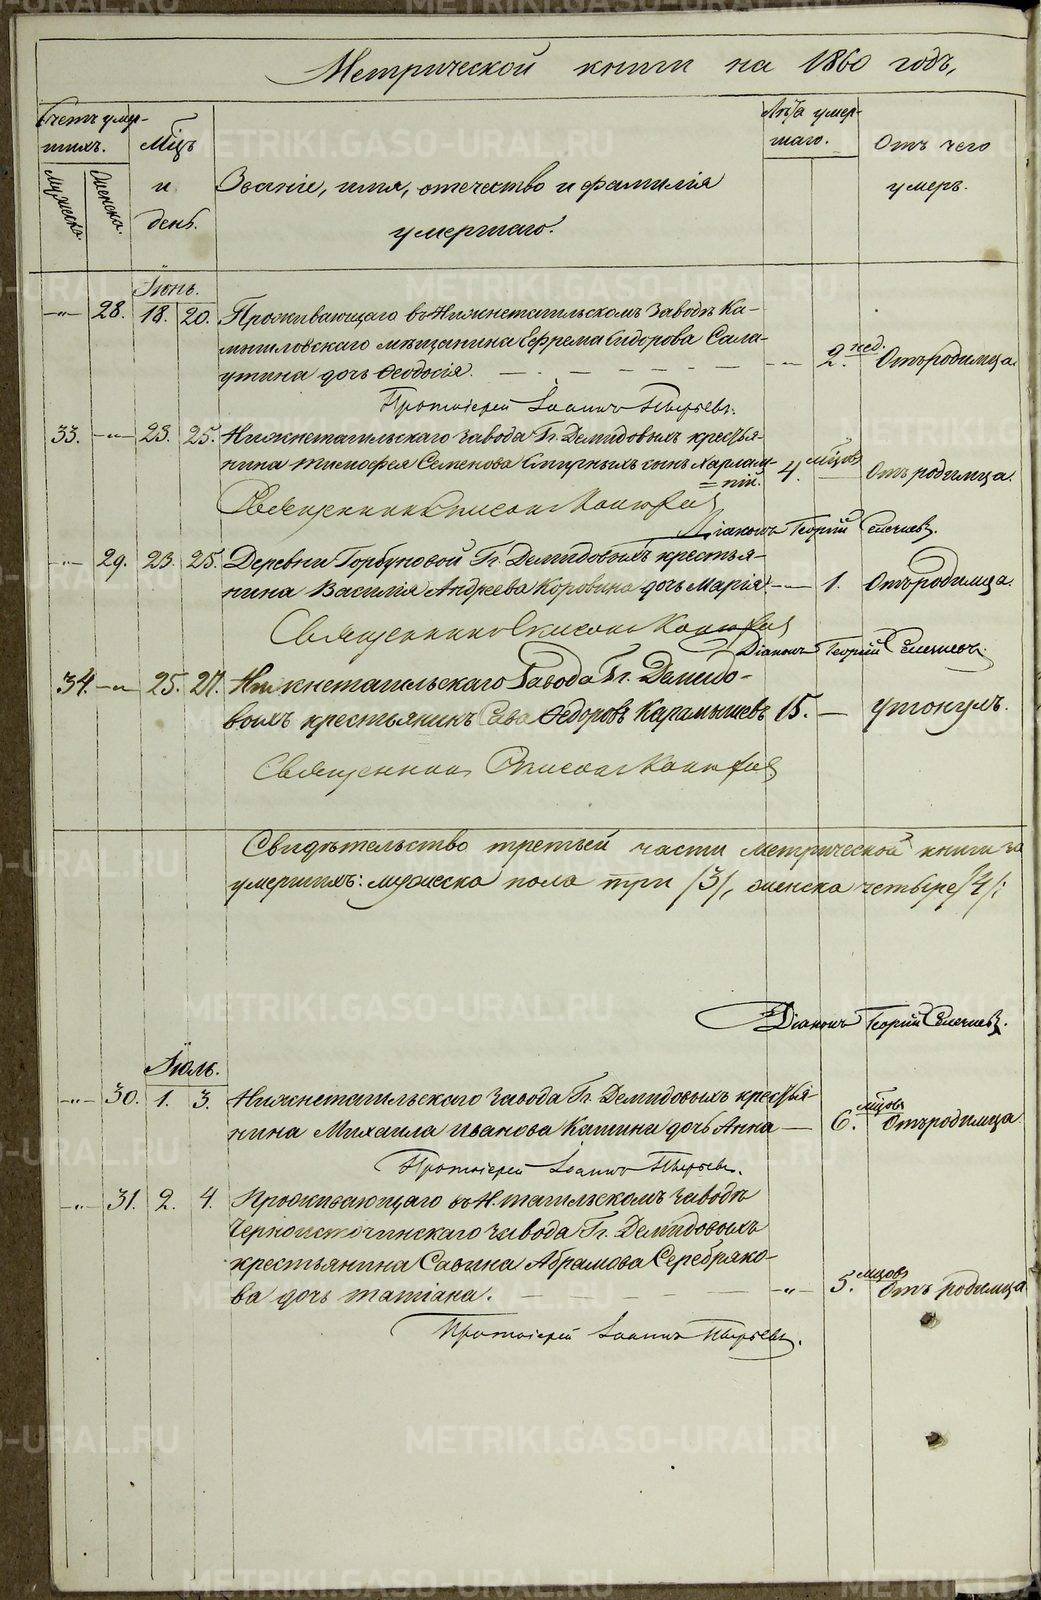 Метрической книги на 1860 годъ,
Счетъ умер-
шихъ.
Мужеска.
Женска.
Мцъ
и
день.
Званіе, имя, отечество и фамилія
умершаго.
Лѣта умер-
шаго.
Отъ чего
умеръ.
Іюнь.
-"- 28. 18. 20. Проживающаго въ Нижнетагильскомъ заводѣ Ка-
мышловскаго мѣщанина Ефрема Сидорова Сала-
утина дочь Ѳеодосія. — — 2. нед. Отъ родимца.
Протоіерей Іоаннъ Пырьевъ.
33. -"- 23. 25. Нижнетагильскаго завода Гг. Демидовыхъ крестья-
нина Тимофея Семенова сынъ Харлам-
пій. 4. мцовъ Отъ родимца.
Священникъ
Діаконъ Георгій
-"- 29. 23. 25. Деревни Горбуновой Гг. Демидовыхъ крестья-
нина Василія Андреева Коровина дочь Марія. — 1. Отъ родимца.
Священникъ
Діаконъ Георгій
34. -"- 25. 27. Нижнетагильскаго Завода Гг. Демидо-
выхъ крестьянинъ Сава Ѳедоровъ Карамышевъ 15. — Утонулъ.
Священникъ
Свидѣтельство третьей части метрической книги за
умершихъ: мужеска пола три /3/, женска четыре /4/:
Діаконъ Георгій
Іюль.
-"- 30. 1. 3. Нижнетагильскаго завода Гг. Демидовыхъ крестья-
нина Михаила Иванова Катина дочь Анна — 6. мцовъ Отъ родимца
Протоіерей Іоаннъ Пырьевъ.
-"- 31. 2. 4. Проживающаго въ Н. тагильскомъ заводѣ
Черноисточинскаго завода Гг. Демидовыхъ
крестьянина Савина Абрамова Серебряко-
ва дочь Татіана. — -"- 5. мцовъ Отъ родимца
Протоіерей Іоаннъ Пырьевъ.
METRIKI.GASO-URAL.RU